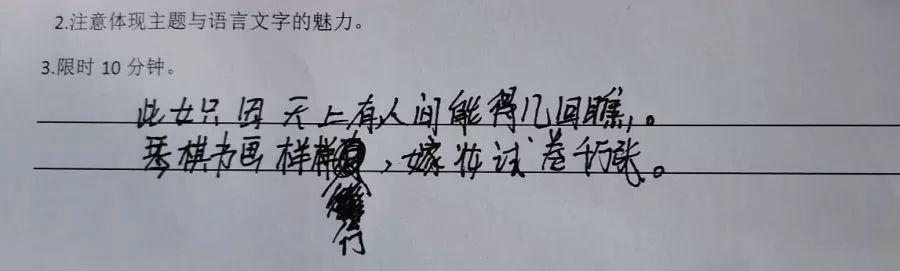 2.注意体现主题与语言文字的魅力。
3.限时 10 分钟。
此女只因天上有人间能得几回瞧。
琴棋书画样样，嫁妆试卷千万张。
行